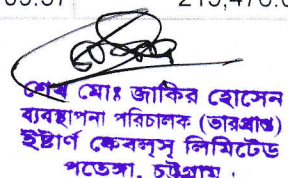 শেখ মোঃ জাকির হোসেন
ব্যবস্থাপনা পরিচালক (ভারপ্রাপ্ত)
ইষ্টার্ণ কেবলস্ লিমিটেড
পতেঙ্গা, চট্টগ্রাম।